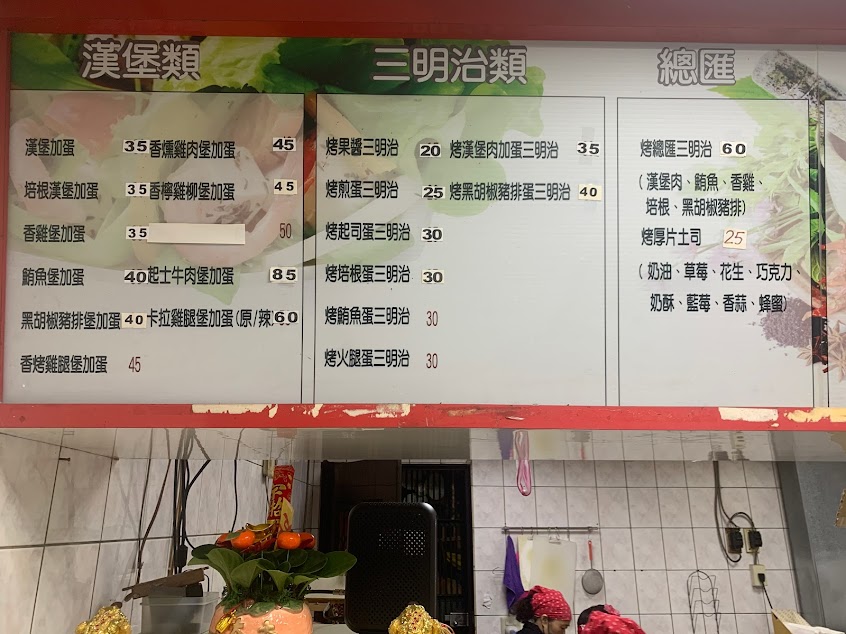 漢堡類
漢堡加蛋 35 香燻雞肉堡加蛋 45
培根漢堡加蛋 35 香檸雞柳堡加蛋 45
香雞堡加蛋 35 50
鮪魚堡加蛋 40 起士牛肉堡加蛋 85
黑胡椒豬排堡加蛋 40 卡拉雞腿堡加蛋(原/辣) 60
香烤雞腿堡加蛋 45
三明治類
烤果醬三明治 20 烤漢堡肉加蛋三明治 35
烤煎蛋三明治 25 烤黑胡椒豬排蛋三明治 40
烤起司蛋三明治 30
烤培根蛋三明治 30
烤鮪魚蛋三明治 30
烤火腿蛋三明治 30
總匯
烤總匯三明治 60
(漢堡肉、鮪魚、香雞、
培根、黑胡椒豬排)
烤厚片土司 25
(奶油、草莓、花生、巧克力、
奶酥、藍莓、香蒜、蜂蜜)